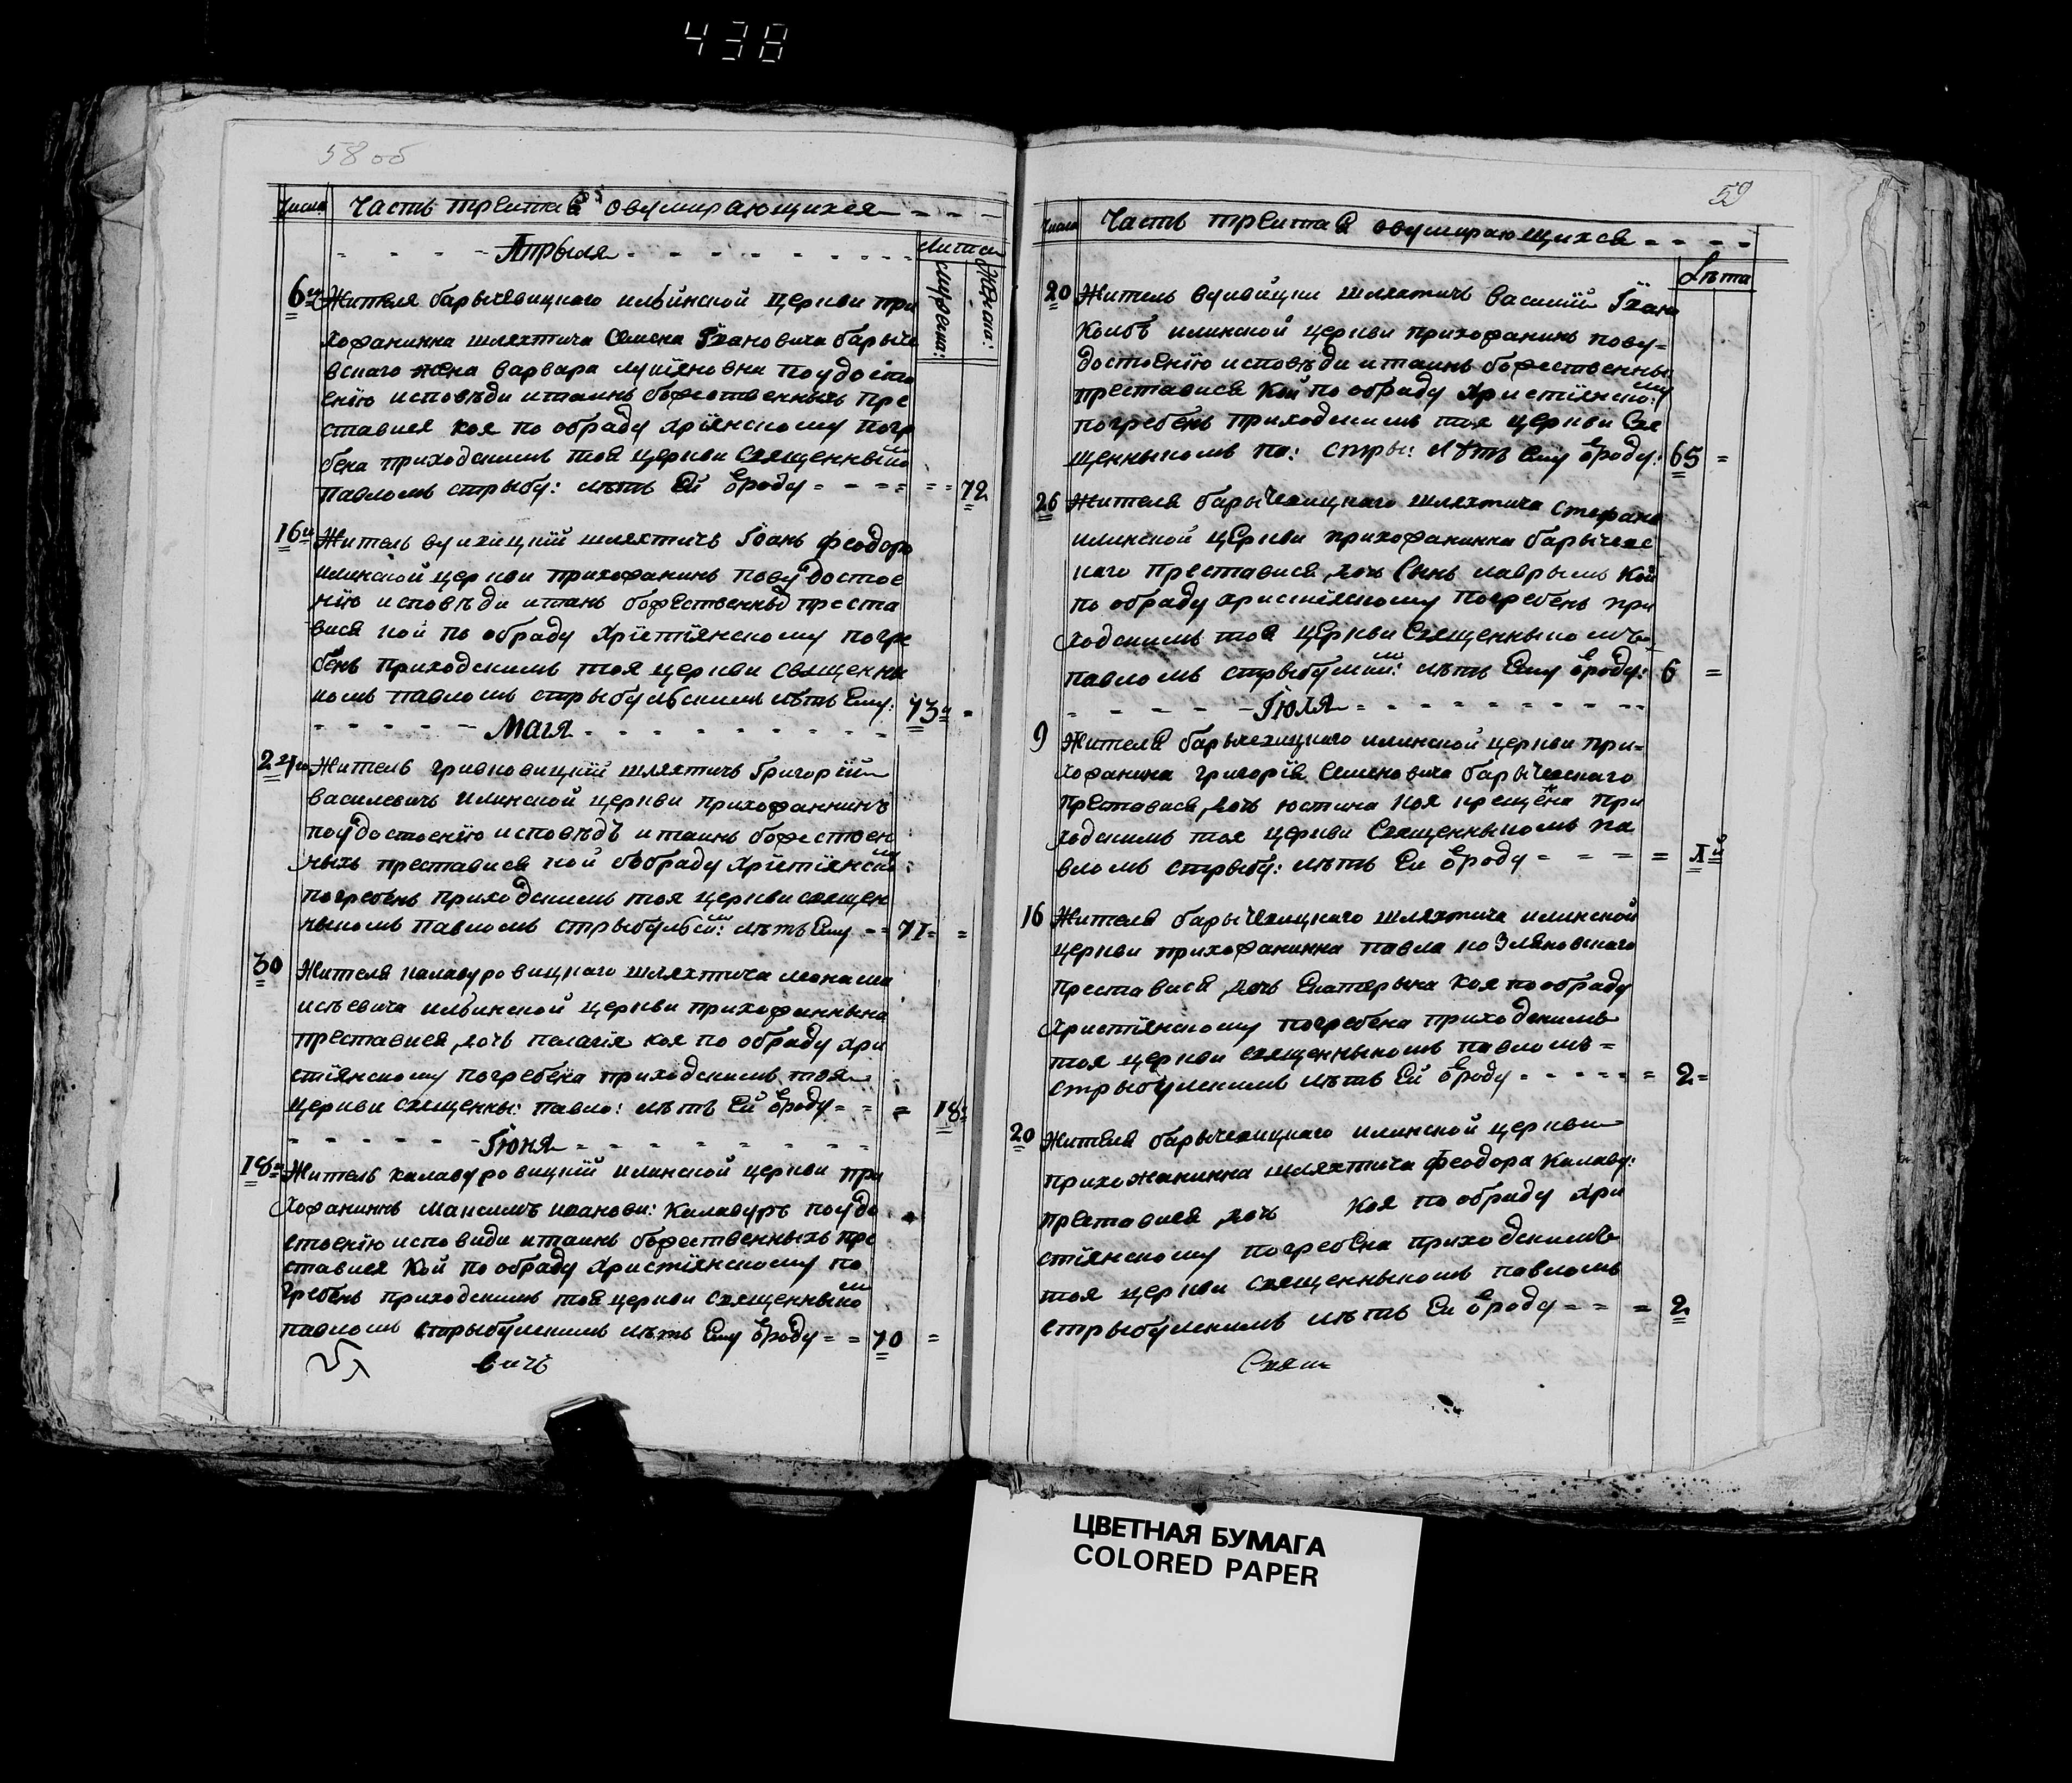 438
58 об
Числа Часть третая о умирающихся
Апрыля Лѣта
Мужеска: Женска:
6 Жителя барычевицкого ильинской церкви при
хожанина шляхтича Семена Іванов­ича барыче
вского жена варвара лукіяновна по удосто
енію исповѣди и таинъ божественныхъ пре
ставися коя по обраду хрістіянскому погре
бена приходскимъ тоя церкви священныком
павломъ стрыбу: лѣтъ Ей ѿроду 72
16 Житель вуихицкій шляхтичъ Іоанъ феодоро
илинской церкви прихожанинъ по вудостое
нію исповѣди и таинъ божественныхъ преста
вися кой по обраду хрістіянскому погре
бенъ приходскимъ тоя церкви священны
комъ павломъ стрыбульскимъ лѣтъ Ему: 73
Маія
24 Житель гридковицкій шляхтичъ Григорій
василевичъ илинской церкви прихожанинъ
по удостоенію исповѣдѣ и таинъ божествен
ныхъ преставися кой по обраду хрістіянско
погребенъ приходскимъ тоя церкви священ
ныкомъ павломъ стрыбульским: лѣтъ Ему 71
30 Жителя калавуровицкаго шляхтича
ильинской церкви прихожанына
преставися дочь пелагія коя по обраду хри
стіянскому погребена приходскимъ тоя
церкви священны: павло: лѣтъ Ей ѿроду 18
Іюня
18 Житель калавуровицкій илинской церкви при
хожанинъ Максимъ иванови: Калавуръ по удо
стоенію исповиди и таинъ божественныхъ пре
ставися Кой по обраду христіянскому по
гребенъ приходскимъ тоя церкви священныком
павломъ стрыбулскимъ лѣтъ Ему ѿроду 70
вичъ
59
Числа Часть третая о умирающихся
Лѣта
20 Житель шляхтичъ василій Іхано
Колбъ илинской церкви прихожанинъ по ву=
достоенію исповѣди и таинъ божественны
преставися Кой по обраду христіянско:му
погребенъ приходскимъ тоя церкви Свя
щенныкомъ па: стры: лѣтъ Ему ѿроду: 65
26 Жителя барычевицкаго шляхтича стефана
илинской церкви прихожанина барычевс
каго преставися дочь Сынъ лаврынъ Кой
по обраду христіянскому погребенъ при
ходскимъ тоя церкви Священныкомъ
павломъ стрыбулским: лѣтъ Ему ѿроду: 6
Іюля
9 Жителя барычевицкаго илинской церкви при=
хожанина григорія Семеновича барычевскаго
преставися дочь юстина коя крещена При
ходскимъ тоя церкви Священныкомъ па
вломъ стрыбу: лѣтъ Ей ѿроду 1
16 Жителя барычевицкаго шляхтича илинской
церкви прихожанина павла козляковского
преставися дочь Екатерына коя по обраду
христіянскому погребена приходскимъ
тоя церкви священныкомъ павломъ=
стрыбулскимъ лѣтъ Ей ѿроду 2
20 Жителя барычевицкаго илинской церкви
прихожанина шляхтича феодора Калаву:
преставися дочь коя по обраду хри
стіянскому погребена приходскимъ
тоя церкви священныкомъ павломъ
стрыбулскимъ лѣтъ Ей ѿроду 2
Свящ
ЦВЕТНАЯ БУМАГА
COLORED PAPER